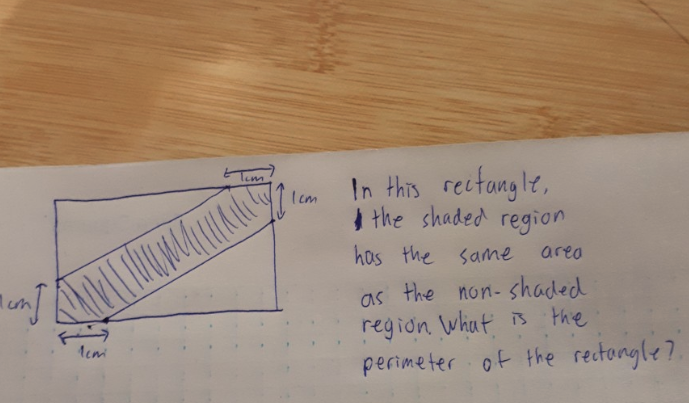 1cm
1cm
In this rectangle,
the shaded region
has the same area
as the non-shaded
region. What is the
perimeter of the rectangle?
1cm
1cm